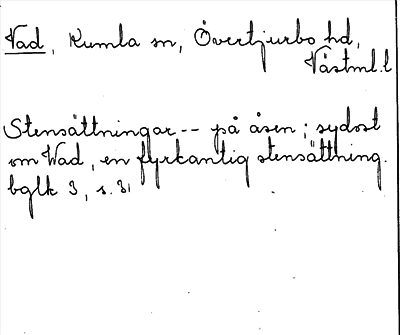 Vad, Kumla sn, Övertjurbo hd,
Västml.l
Stensättningar -- på åsen; sydost
om Wad, en fyrkantig stensättning.
bglk 3, s. 31